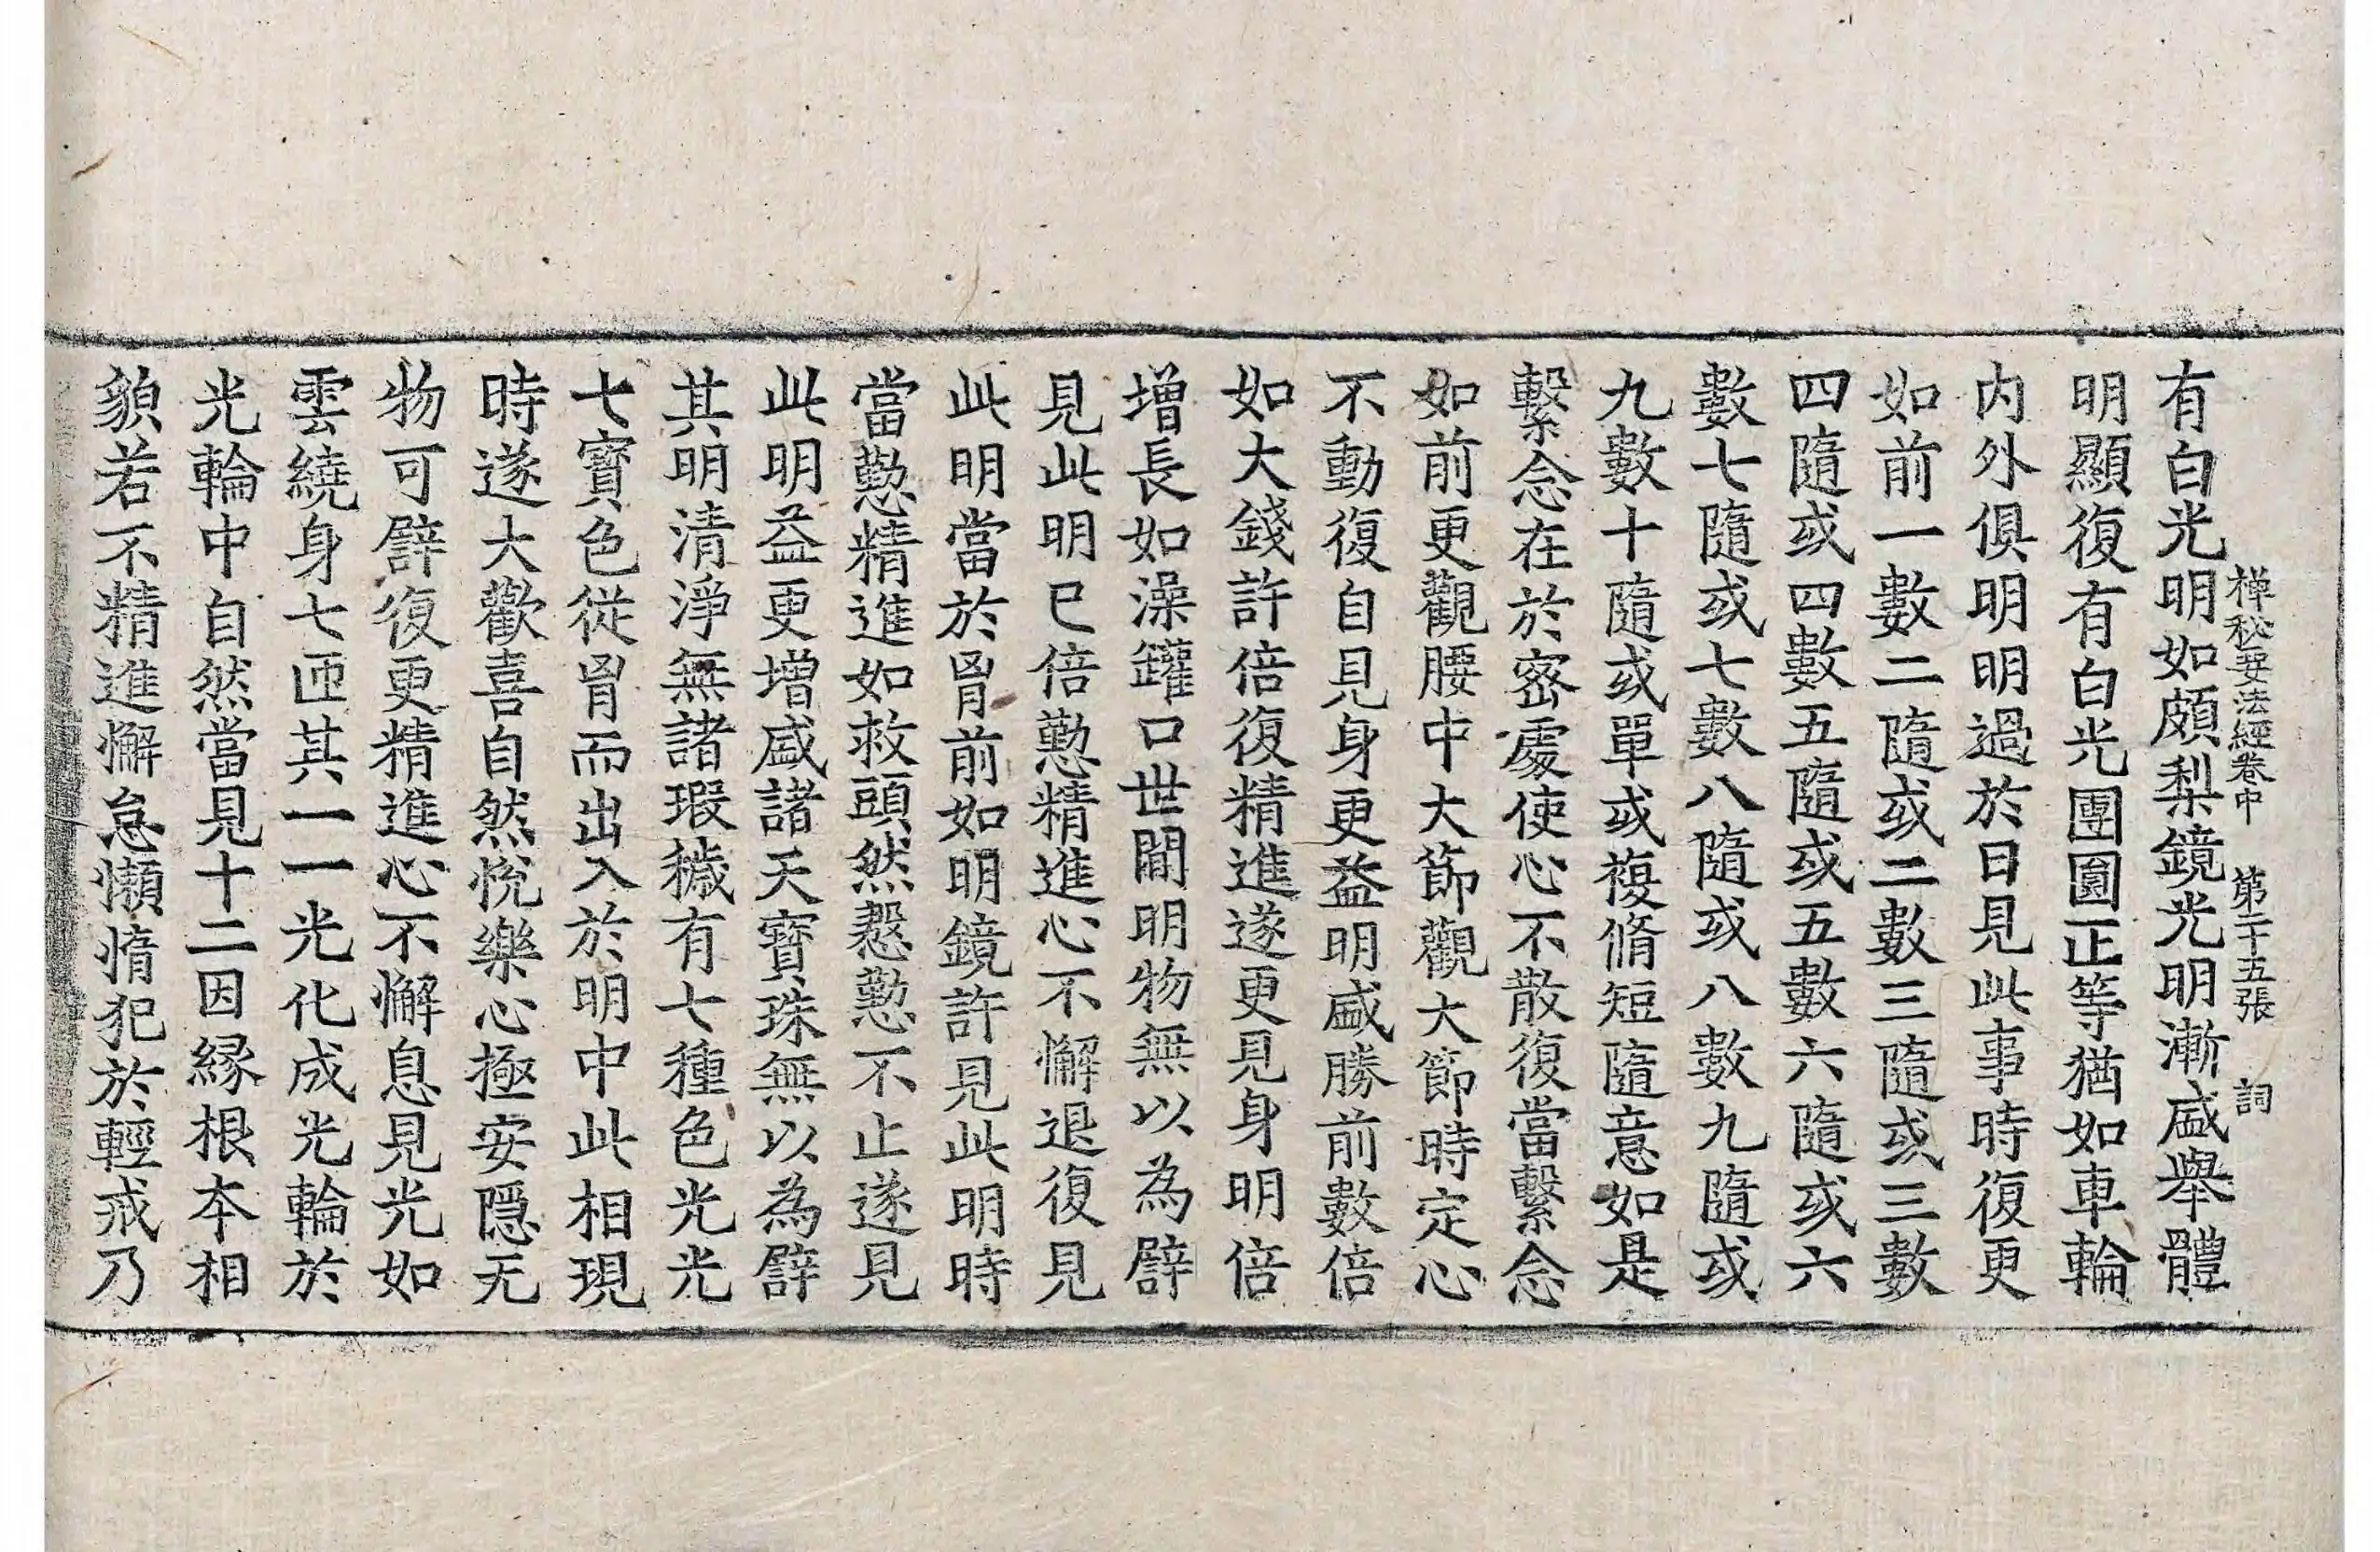 禅秘要法經卷中　第二十五張　詞
有白光明如頗梨鏡光明漸盛舉體
明顯復有白光團圓正等猶如車輪
内外俱明明過於日見此事時復更
如前一數二隨或二數三隨或三數
四隨或四數五隨或五數六隨或六
數七隨或七數八隨或八數九隨或
九數十隨或單或複脩短隨意如是
繫念在於密處使心不散復當繫念
如前更觀腰中大節觀大節時定心
不動復自見身更益明盛勝前數倍
如大錢許倍復精進遂更見身明倍
增長如澡罐口世間明物無以為譬
見此明已倍懃精進心不懈退復見
此明當於胷前如明鏡許見此明時
當懃精進如救頭然慇懃不止遂見
此明益更增盛諸天寶珠無以為譬
其明清淨無諸瑕穢有七種色光光
七寶色從胷而出入於明中此相現
時遂大歡喜自然悅樂心極安隱无
物可譬復更精進心不懈息見光如
雲繞身七匝其一一光化成光輪於
光輪中自然當見十二因緣根本相
貌若不精進懈怠懶惰犯於輕戒乃